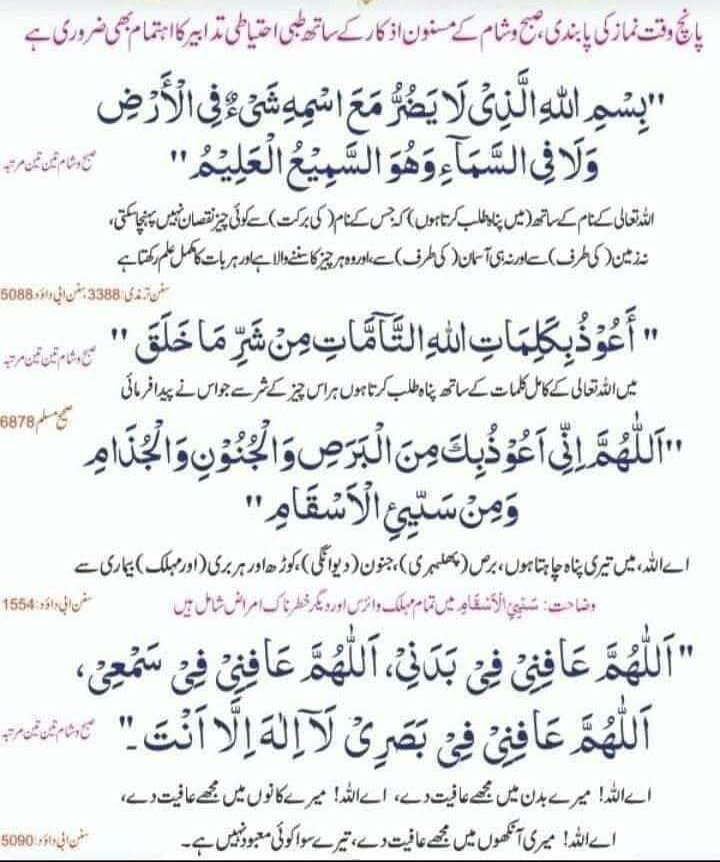 پانچ وقت نماز کی پابندی، صبح و شام کے مسنون اذکار کے ساتھ طبی احتیاطی تدابیر کا اہتمام بھی ضروری ہے
"بِسْمِ اللهِ الَّذِىْ لَا يَضُرُّ مَعَ اسْمِهٖ شَىْءٌ فِى الْأَرْضِ
وَلَا فِى السَّمَآءِ وَهُوَ السَّمِيْعُ الْعَلِيْمُ" صبح و شام تین تین مرتبہ
اللہ تعالیٰ کے نام کے ساتھ (میں پناہ طلب کرتا ہوں) کہ جس کے نام (کی برکت) سے کوئی چیز نقصان نہیں پہنچا سکتی،
نہ زمین (کی طرف) سے اور نہ ہی آسمان (کی طرف) سے، اور وہ ہر چیز کا سننے والا ہے اور ہر بات کا مکمل علم رکھتا ہے
سنن ترمذی: 3388، سنن ابی داؤد: 5088
"أَعُوْذُ بِكَلِمَاتِ اللهِ التَّآمَّاتِ مِنْ شَرِّ مَا خَلَقَ" صبح و شام تین تین مرتبہ
میں اللہ تعالیٰ کے کامل کلمات کے ساتھ پناہ طلب کرتا ہوں ہر اس چیز کے شر سے جو اس نے پیدا فرمائی
صحیح مسلم 6878
"اَللّٰهُمَّ اِنِّىْ اَعُوْذُ بِكَ مِنَ الْبَرَصِ وَالْجُنُوْنِ وَالْجُذَامِ
وَمِنْ سَيِّئِ الْاَسْقَامِ"
اے اللہ، میں تیری پناہ چاہتا ہوں، برص (پھلبہری)، جنون (دیوانگی)، کوڑھ اور ہر بری (اور مہلک) بیماری سے
وضاحت: سَيِّئِ الْاَسْقَامِ میں تمام مہلک وائرس اور دیگر خطرناک امراض شامل ہیں سنن ابی داؤد: 1554
"اَللّٰهُمَّ عَافِنِىْ فِىْ بَدَنِىْ، اَللّٰهُمَّ عَافِنِىْ فِىْ سَمْعِىْ،
اَللّٰهُمَّ عَافِنِىْ فِىْ بَصَرِىْ لَآ اِلٰهَ اِلَّا اَنْتَ۔" صبح و شام تین تین مرتبہ
اے اللہ! میرے بدن میں مجھے عافیت دے، اے اللہ! میرے کانوں میں مجھے عافیت دے،
اے اللہ! میری آنکھوں میں مجھے عافیت دے، تیرے سوا کوئی معبود نہیں ہے۔ سنن ابی داؤد: 5090